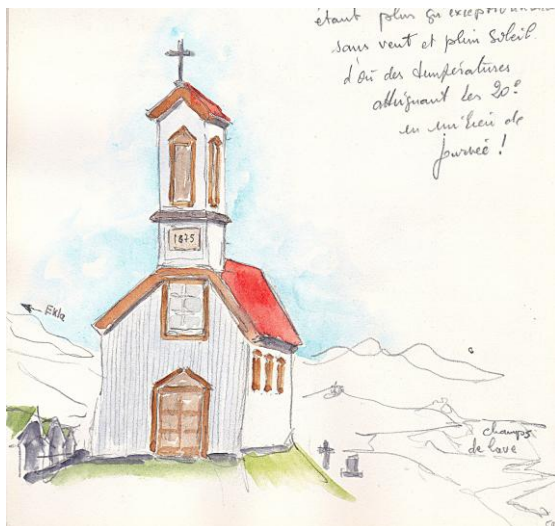 étant plus qu'exceptionnel
sans vent et plein soleil.
d'où des températures
atteignant les 20°
en milieu de
journée !
1875
Ekla
champs
de lave